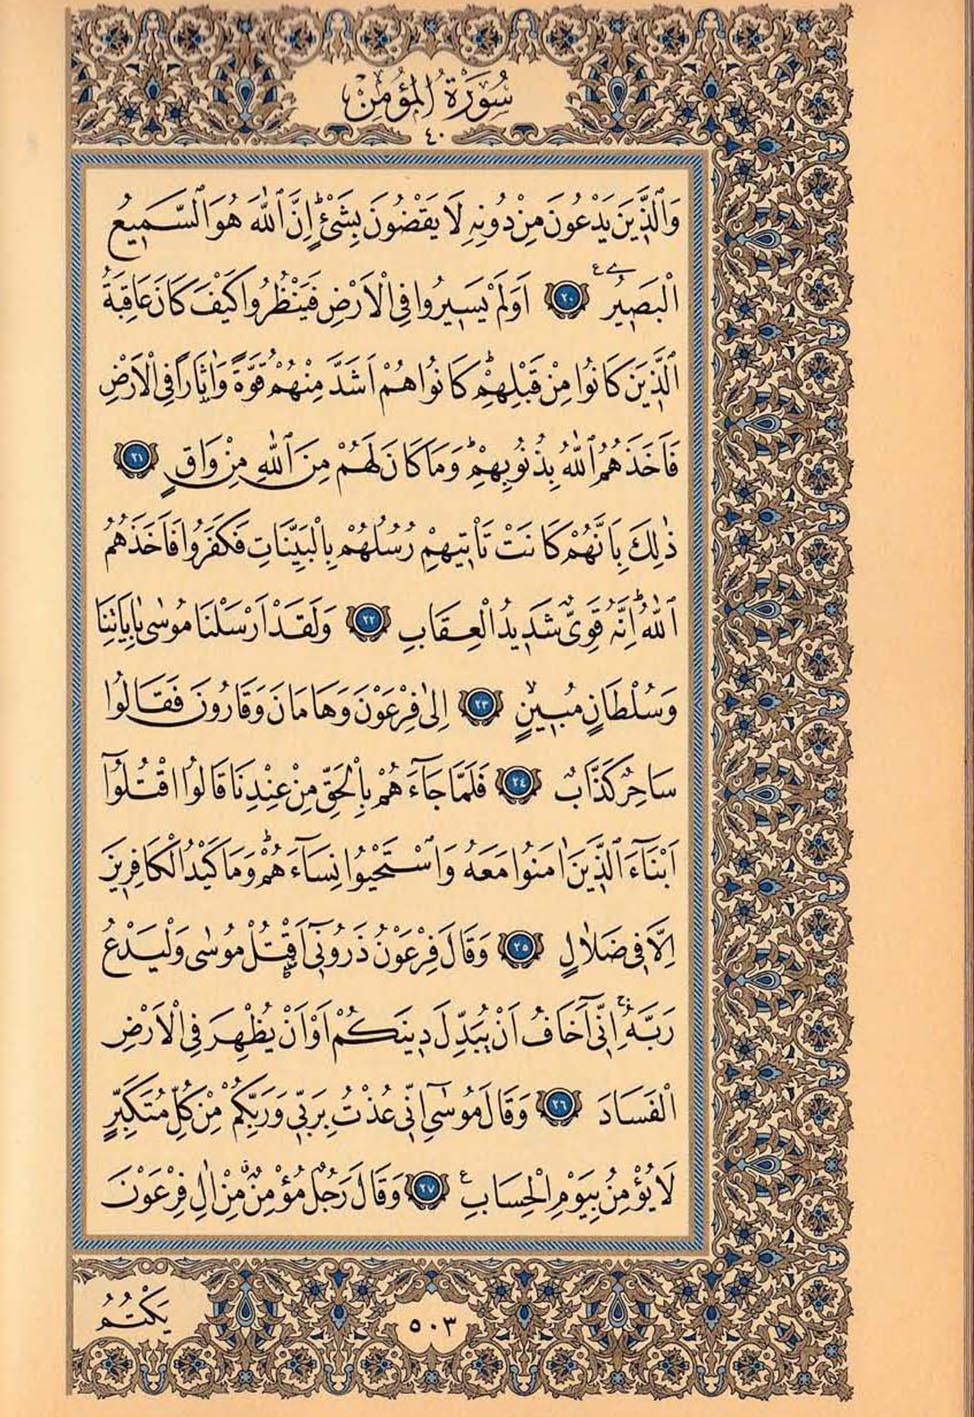 سُورَةُ الْمُؤْمِنِ
٤٠
وَالَّذِينَ يَدْعُونَ مِنْ دُونِهِ لَا يَقْضُونَ بِشَيْءٍ ۜ اِنَّ اللّٰهَ هُوَ السَّمِيعُ
الْبَصِيرُ ۟ ﴿٢٠﴾ اَوَلَمْ يَسِيرُوا فِي الْاَرْضِ فَيَنْظُرُوا كَيْفَ كَانَ عَاقِبَةُ
الَّذِينَ كَانُوا مِنْ قَبْلِهِمْ ۜ كَانُوا هُمْ اَشَدَّ مِنْهُمْ قُوَّةً وَاٰثَارًا فِي الْاَرْضِ
فَاَخَذَهُمُ اللّٰهُ بِذُنُوبِهِمْ ۜ وَمَا كَانَ لَهُمْ مِنَ اللّٰهِ مِنْ وَاقٍ ﴿٢١﴾
ذٰلِكَ بِاَنَّهُمْ كَانَتْ تَأْتِيهِمْ رُسُلُهُمْ بِالْبَيِّنَاتِ فَكَفَرُوا فَاَخَذَهُمُ
اللّٰهُ ۜ اِنَّهُ قَوِيٌّ شَدِيدُ الْعِقَابِ ﴿٢٢﴾ وَلَقَدْ اَرْسَلْنَا مُوسٰى بِاٰيَاتِنَا
وَسُلْطَانٍ مُبِينٍ ۙ ﴿٢٣﴾ اِلٰى فِرْعَوْنَ وَهَامَانَ وَقَارُونَ فَقَالُوا
سَاحِرٌ كَذَّابٌ ﴿٢٤﴾ فَلَمَّا جَٓاءَهُمْ بِالْحَقِّ مِنْ عِنْدِنَا قَالُوا اقْتُلُٓوا
اَبْنَٓاءَ الَّذِينَ اٰمَنُوا مَعَهُ وَاسْتَحْيُوا نِسَٓاءَهُمْ ۜ وَمَا كَيْدُ الْكَافِرِينَ
اِلَّا فِي ضَلَالٍ ﴿٢٥﴾ وَقَالَ فِرْعَوْنُ ذَرُونِٓي اَقْتُلْ مُوسٰى وَلْيَدْعُ
رَبَّهُ ۚ اِنِّٓي اَخَافُ اَنْ يُبَدِّلَ دِينَكُمْ اَوْ اَنْ يُظْهِرَ فِي الْاَرْضِ
الْفَسَادَ ﴿٢٦﴾ وَقَالَ مُوسٰٓى اِنِّي عُذْتُ بِرَبِّي وَرَبِّكُمْ مِنْ كُلِّ مُتَكَبِّرٍ
لَا يُؤْمِنُ بِيَوْمِ الْحِسَابِ ۟ ﴿٢٧﴾ وَقَالَ رَجُلٌ مُؤْمِنٌ ۗ مِنْ اٰلِ فِرْعَوْنَ
يَكْتُمُ
٥٠٣